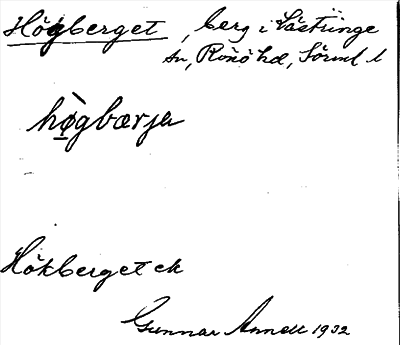 Högberget, berg i Lästringe
sn, Rönö hd, Sörml l
hø̀gbærja
Hökberget ek
Gunnar Annell 1932